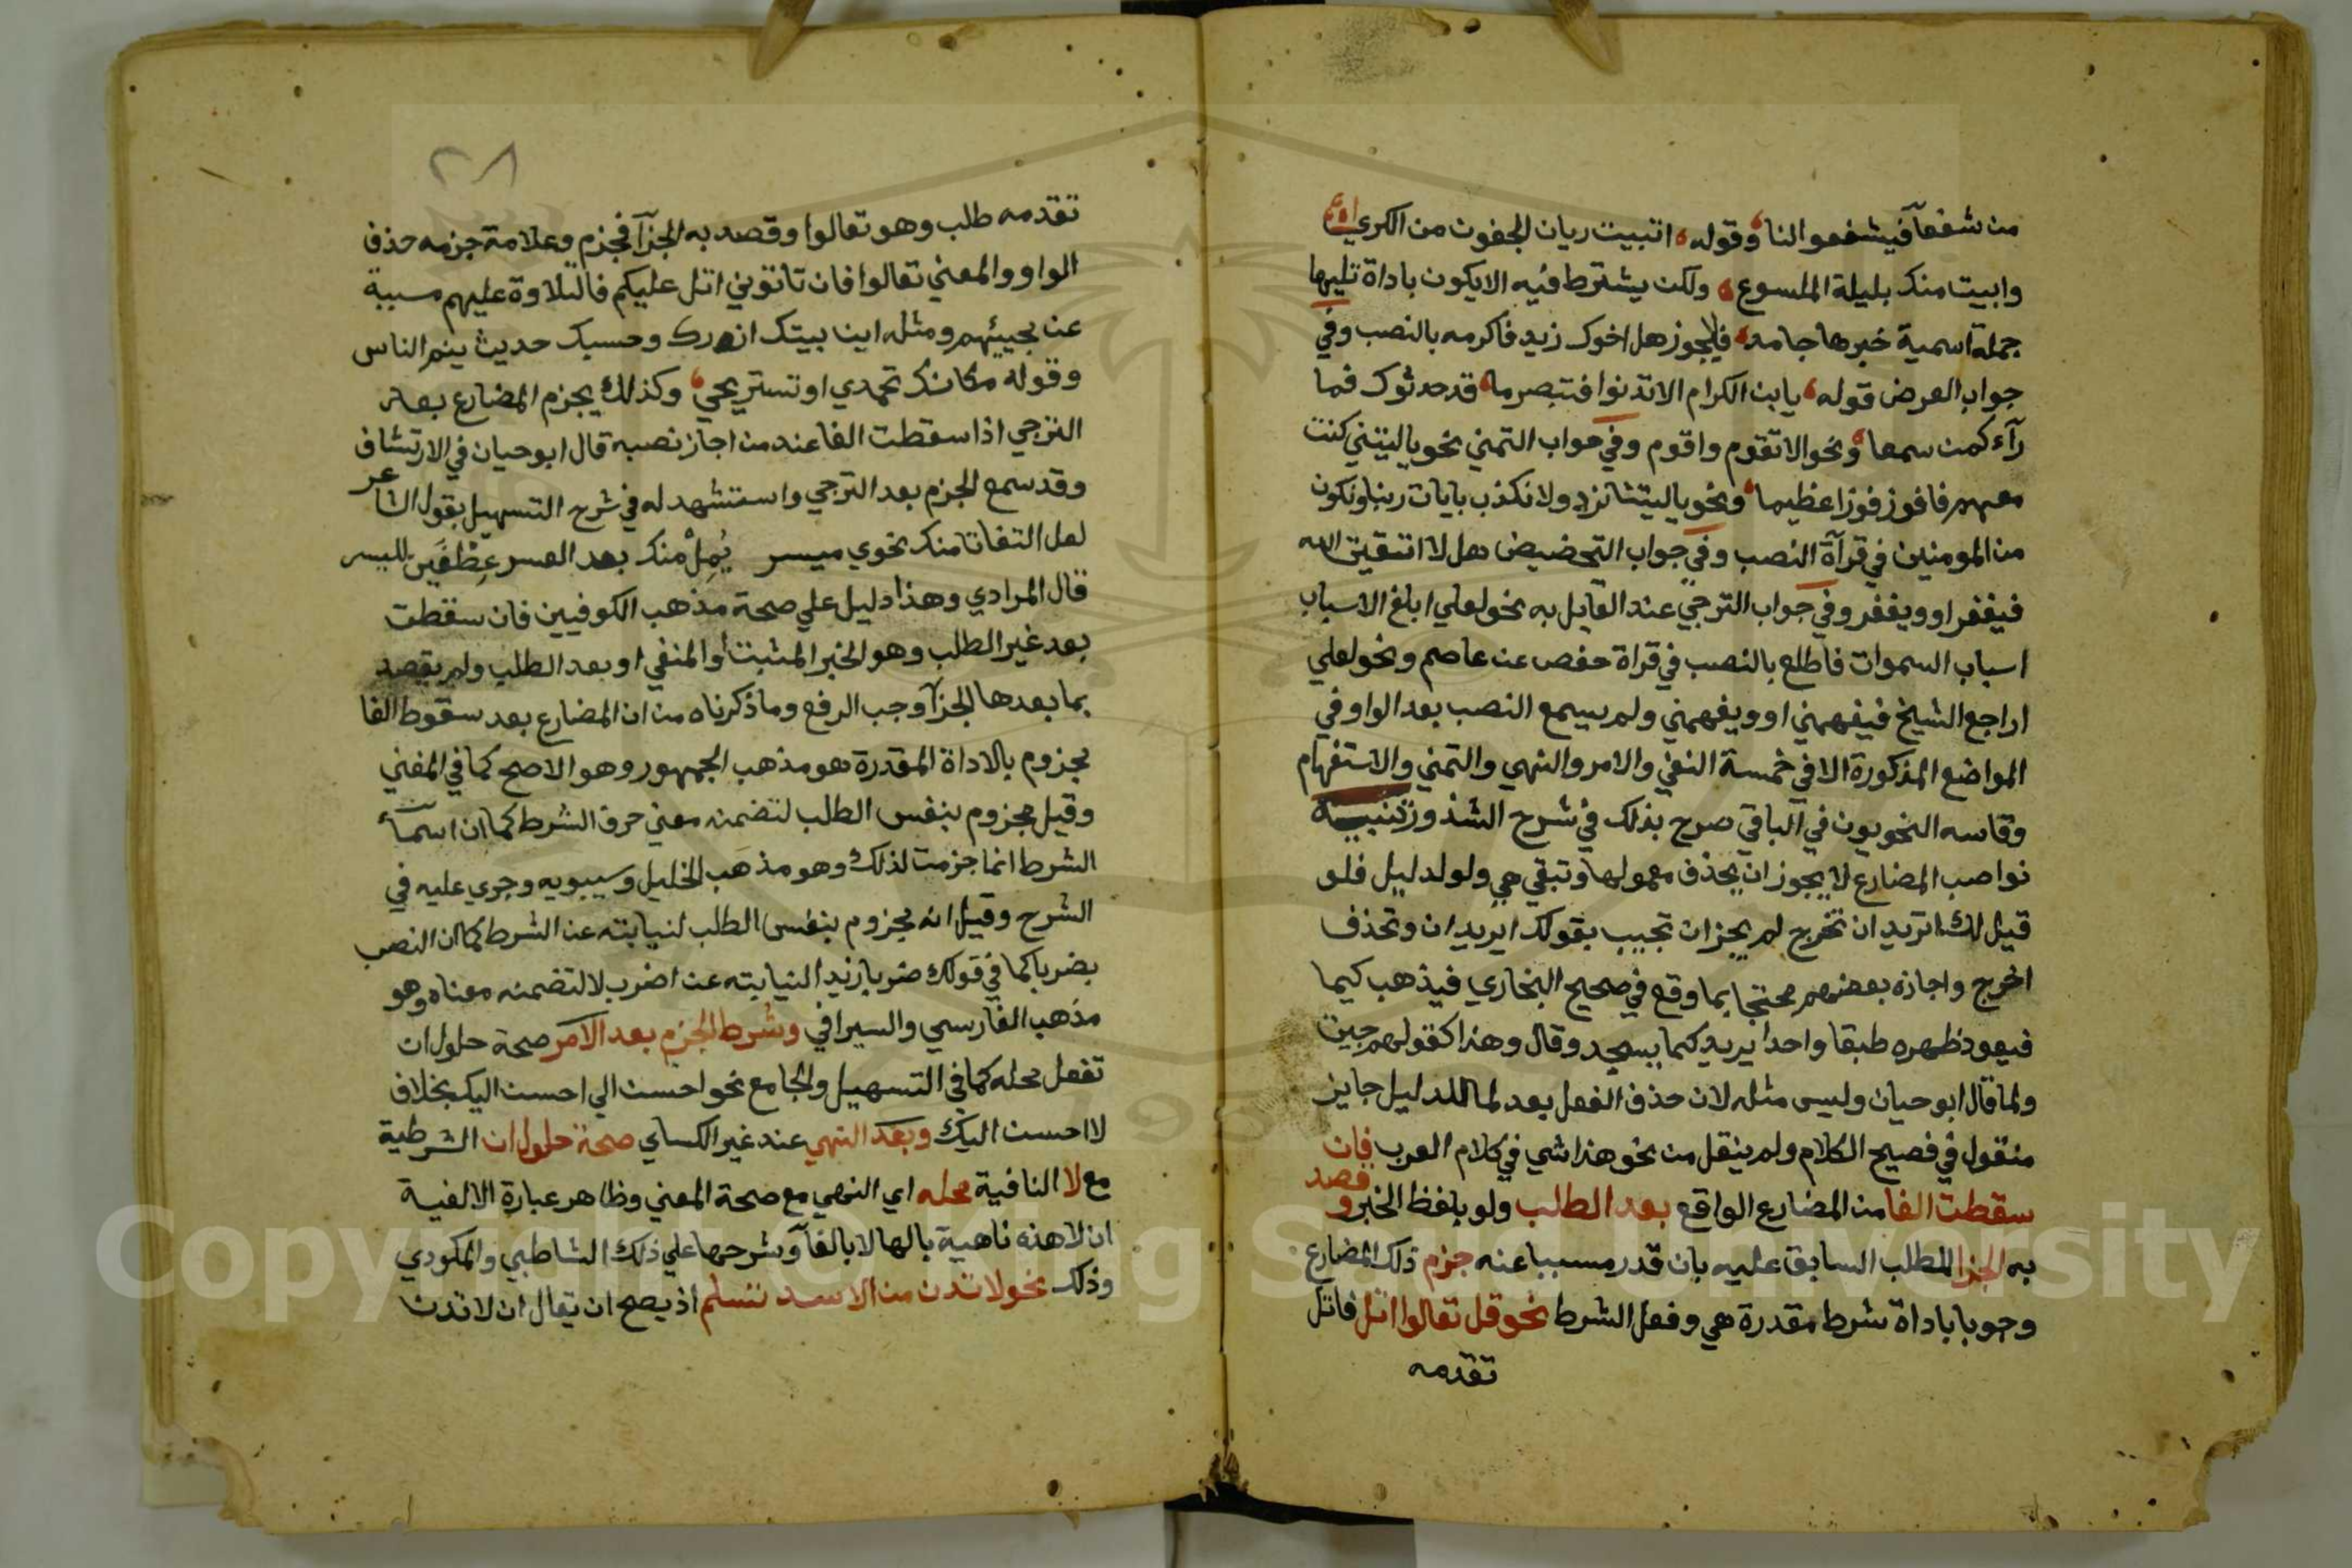 من شفعآ فيشفعوا لنا وقوله اتبيت ريان الجفون من الكري
وابيت منك بليلة الملسوع ولكن يشترط فيه الا يكون باداة تليها
جملة اسمية خبرها جامد فلا يجوز هل اخوك زيد فاكرمه بالنصب وفي
جواب العرض قوله يا بن الكرام الا تدنوا فتبصر ما قد حدثوك فما
رآء كمن سمعا ونحو الا تقوم واقوم وفي جواب التمني نحو يا ليتني كنت
معهم فافوز فوزا عظيما ونحو يا ليتنا نرد ولا نكذب بايات ربنا ونكون
من المومنين في قرآة النصب وفي جواب التحضيض هل لا اتقيت الله
فيغفر او ويغفر وفي جواب الترجي عند القايل به نحو لعلي ابلغ الاسباب
اسباب السموات فاطلع بالنصب في قراة حفص عن عاصم ونحو لعلي
اراجع الشيخ فيفهمني او ويفهمني ولم يسمع النصب بعد الواو في
المواضع المذكورة الا في خمسة النفي والامر والنهي والتمني والاستفهام
وقاسه النحويون في الباقي صرح بذلك في شرح الشذور تنبيه
نواصب المضارع لا يجوز ان يحذف معمولها وتبقي هي ولو لدليل فلو
قيل لك اتريد ان تخرج لم يجز ان تجيب بقولك اريد ان وتحذف
اخرج واجازه بعضهم محتجا بما وقع في صحيح البخاري فيذهب كيما
فيعود ظهره طبقا واحدا يريد كيما يسجد وقال وهذا كقولهم جيت
ولما قال ابو حيان وليس مثله لان حذف الفعل بعد لما للدليل جايز
منقول في فصيح الكلام ولم ينقل من نحو هذا شي في كلام العرب فان
سقطت الفا من المضارع الواقع بعد الطلب ولو بلفظ الخبر و قصد
به الجزا للطلب السابق عليه بان قدر مسببا عنه جزم ذلك المضارع
وجوبا باداة شرط مقدرة هي وفعل الشرط نحو قل تعالوا اتل فاتل
تقدمه
٢٨
تقدمه طلب وهو تعالوا وقصد به الجزآ فجزم وعلامة جزمه حذف
الواو والمعني تعالوا فان تاتوني اتل عليكم فالتلاوة عليهم مسببة
عن مجيئهم ومثله اين بيتك ازورك وحسبك حديث ينم الناس
وقوله مكانك تحمدي او تستريحي وكذلك يجزم المضارع بعد
الترجي اذا سقطت الفا عند من اجاز نصبه قال ابو حيان في الارتشاف
وقد سمع الجزم بعد الترجي واستشهد له في شرح التسهيل بقول الشاعر
لعل التفاتا منك نحوي ميسر يُمِلْ منك بعد العسر عِطْفَين لليسر
قال المرادي وهذا دليل علي صحة مذهب الكوفيين فان سقطت
بعد غير الطلب وهو الخبر المثبت أو المنفي او بعد الطلب ولم يقصد
بما بعدها الجزآ وجب الرفع وما ذكرناه من ان المضارع بعد سقوط الفا
مجزوم بالاداة المقدرة هو مذهب الجمهور وهو الاصح كما في المغني
وقيل مجزوم بنفس الطلب لتضمنه معني حرف الشرط كما ان اسمآ
الشرط انما جزمت لذلك وهو مذهب الخليل وسيبويه وجري عليه في
الشرح وقيل انه مجزوم بنفس الطلب لنيابته عن الشرط كما ان النصب
بضربا كما في قولك ضربا زيدا لنيابته عن اضرب لا لتضمنه معناه وهو
مذهب الفارسي والسيرافي وشرط الجزم بعد الامر صحة حلول ان
تفعل محله كما في التسهيل والجامع نحو احسن الي احسن اليك بخلاف
لا احسن اليك وبعد النهي عند غير الكساي صحة حلول ان الشرطية
مع لا النافية محله اي النهي مع صحة المعني وظاهر عبارة الالفية
ان لا هذه ناهية بالها لا بالفآ وشرحها علي ذلك الشاطبي والمكودي
وذلك نحو لا تدن من الاسد تسلم اذ يصح ان يقال ان لا تدن
Copyright © King Saud University